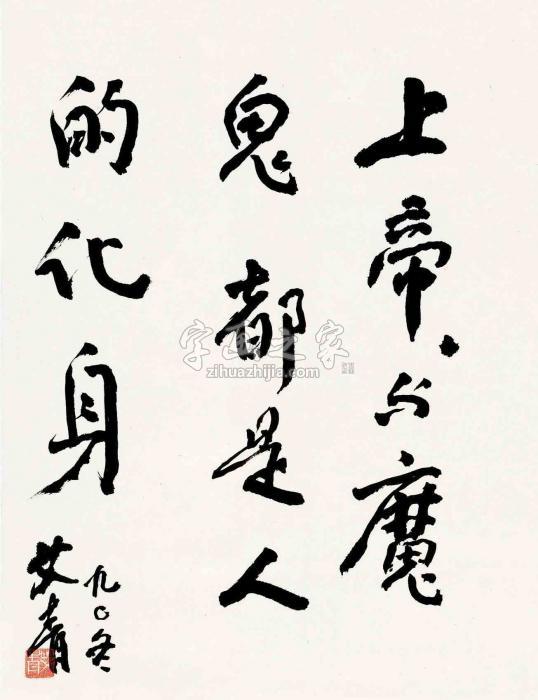 上帝、与魔
鬼都是人
的化身
九〇冬
艾青
字画之家
www.zihuazhijia.com